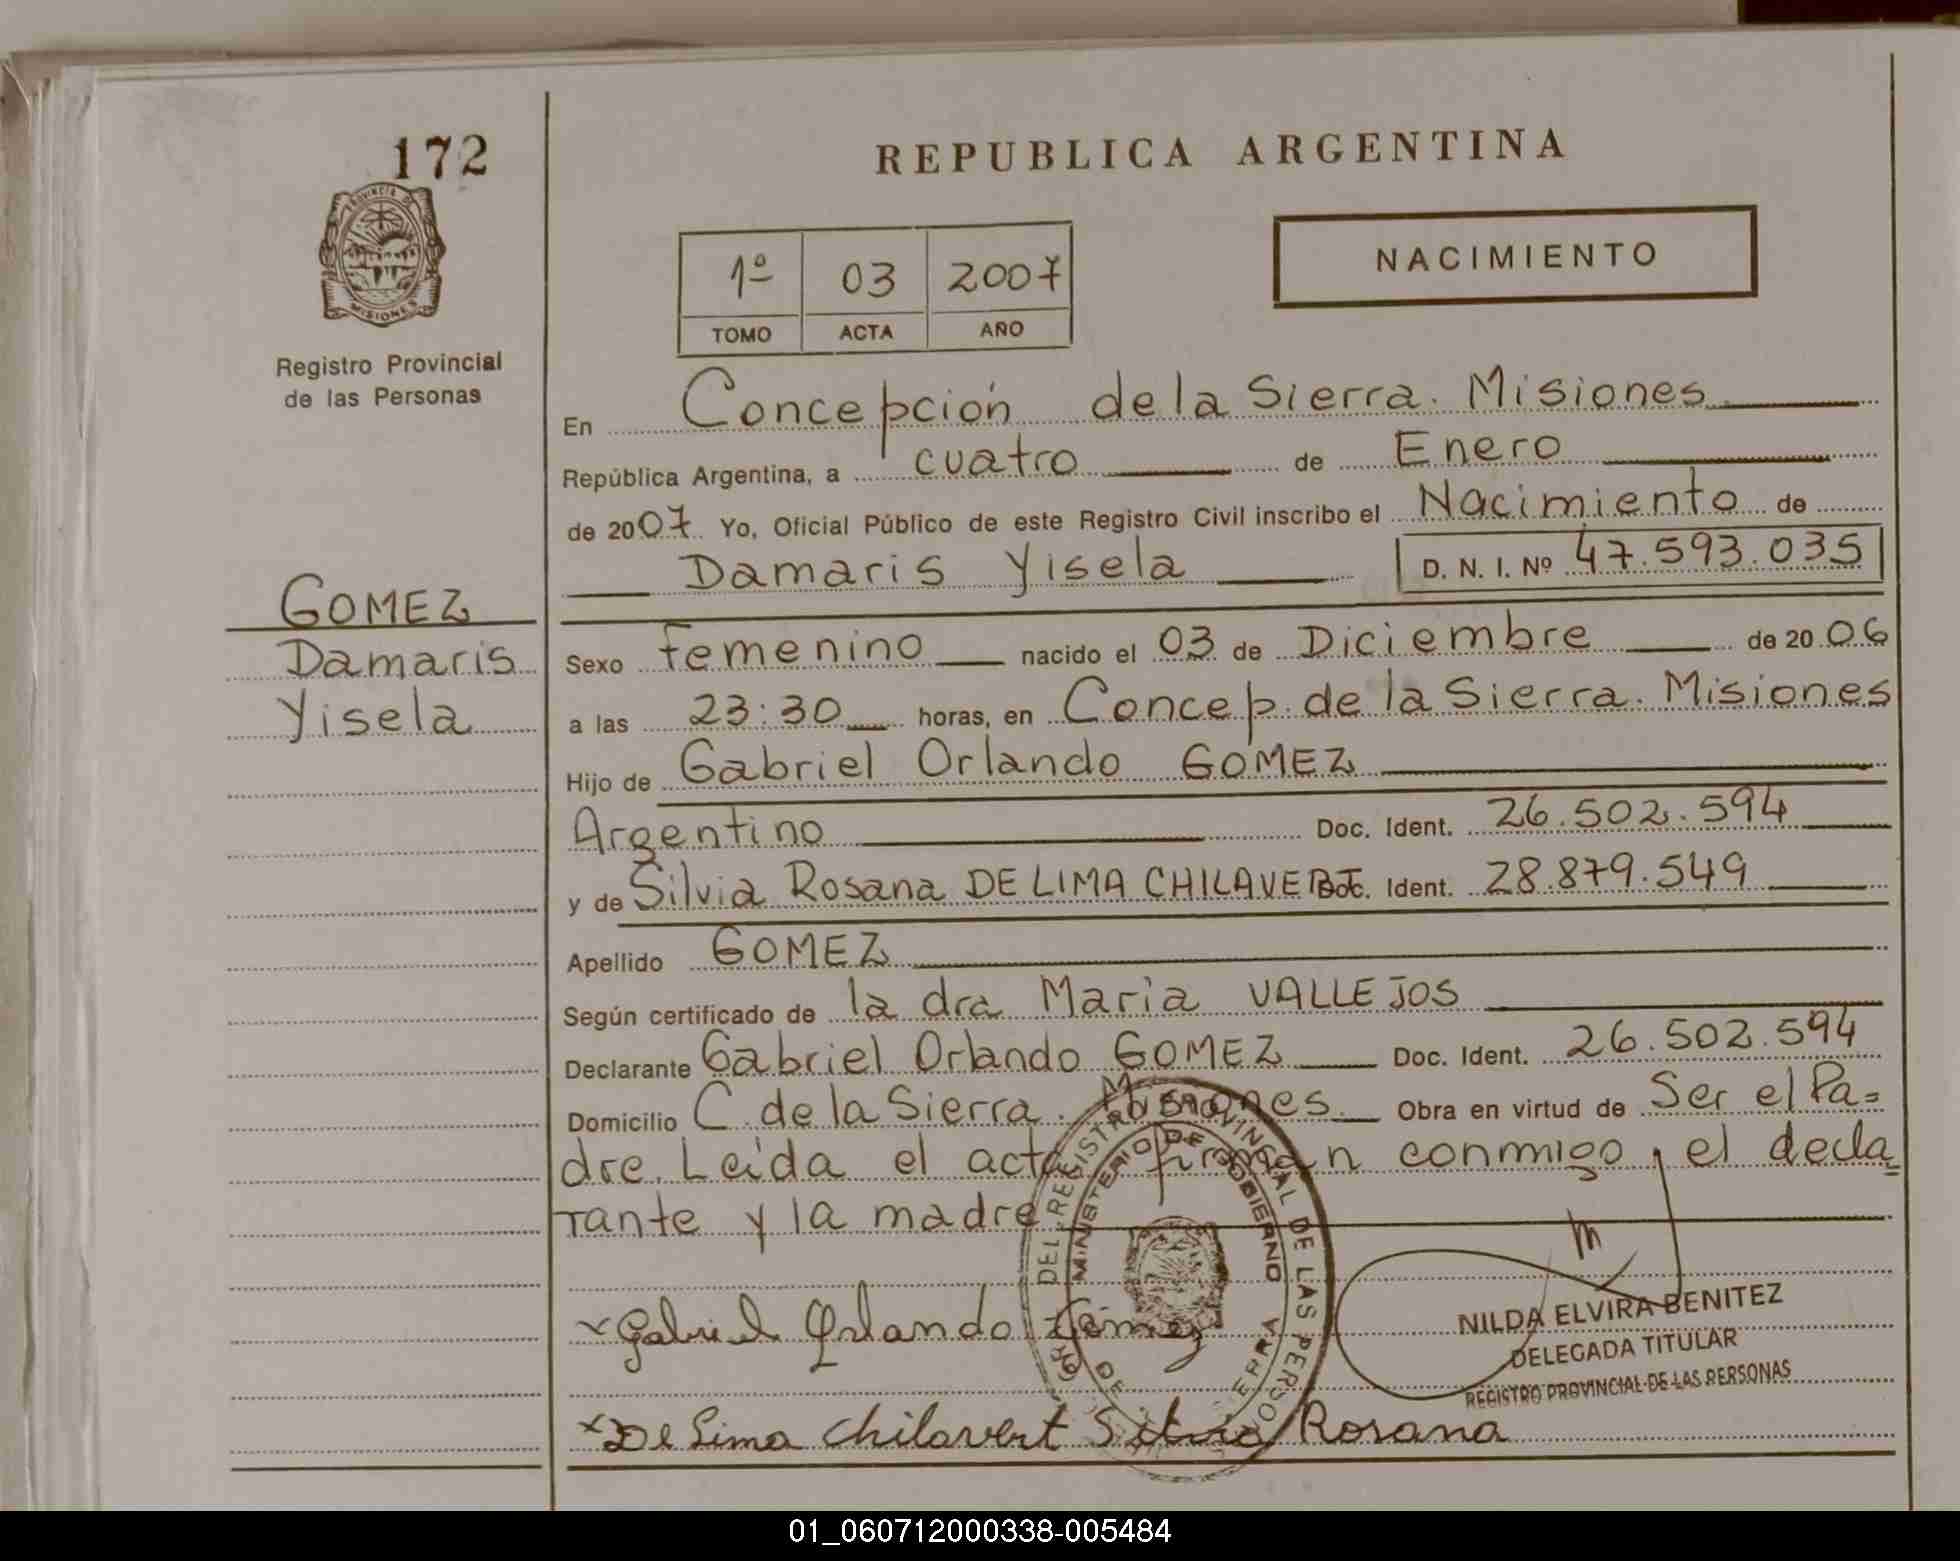 172
PROVINCIA DE
MISIONES
Registro Provincial
de las Personas
GOMEZ
Damaris
Yisela
REPUBLICA ARGENTINA
1º 03 2007
TOMO ACTA AÑO
NACIMIENTO
En Concepción de la Sierra. Misiones
República Argentina, a cuatro de Enero
de 2007. Yo, Oficial Público de este Registro Civil inscribo el Nacimiento de
Damaris Yisela D. N. I. Nº 47.593.035
Sexo femenino nacido el 03 de Diciembre de 2006
a las 23:30 horas, en Concep. de la Sierra. Misiones
Hijo de Gabriel Orlando GOMEZ
Argentino Doc. Ident. 26.502.594
y de Silvia Rosana DE LIMA CHILAVERT Doc. Ident. 28.879.549
Apellido GOMEZ
Según certificado de la dra Maria VALLEJOS
Declarante Gabriel Orlando GOMEZ Doc. Ident. 26.502.594
Domicilio C. de la Sierra. Misiones Obra en virtud de Ser el Pa=
dre. Leída el acta firman conmigo, el decla=
rante y la madre
DEL REGISTRO PROVINCIAL DE LAS PERSONAS
MINISTERIO DE GOBIERNO
Gabriel Orlando Gómez
NILDA ELVIRA BENITEZ
DELEGADA TITULAR
REGISTRO PROVINCIAL DE LAS PERSONAS
De Lima Chilavert Silvia Rosana
01_060712000338-005484